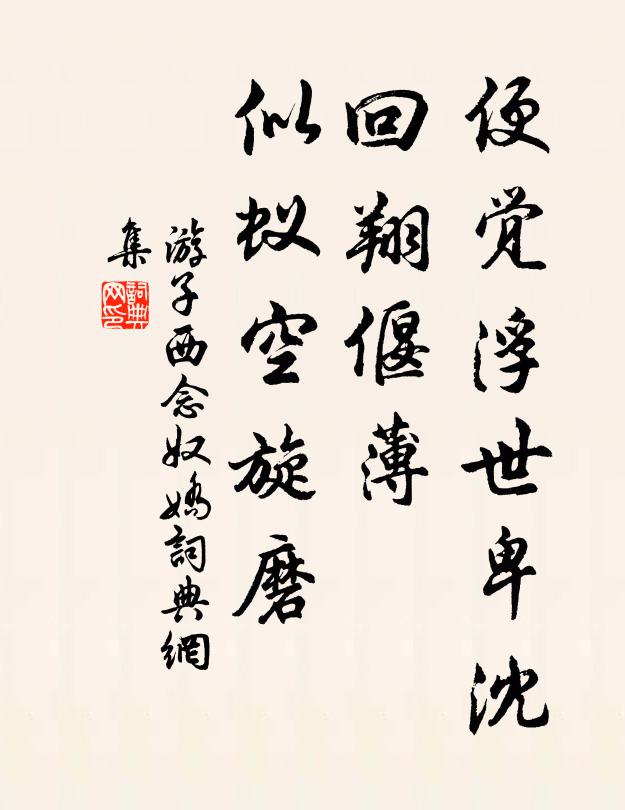 便觉浮世卑沈
回翔偃薄
似蚁空旋磨
游子西念奴嬌詞典網
集
詞典
网印